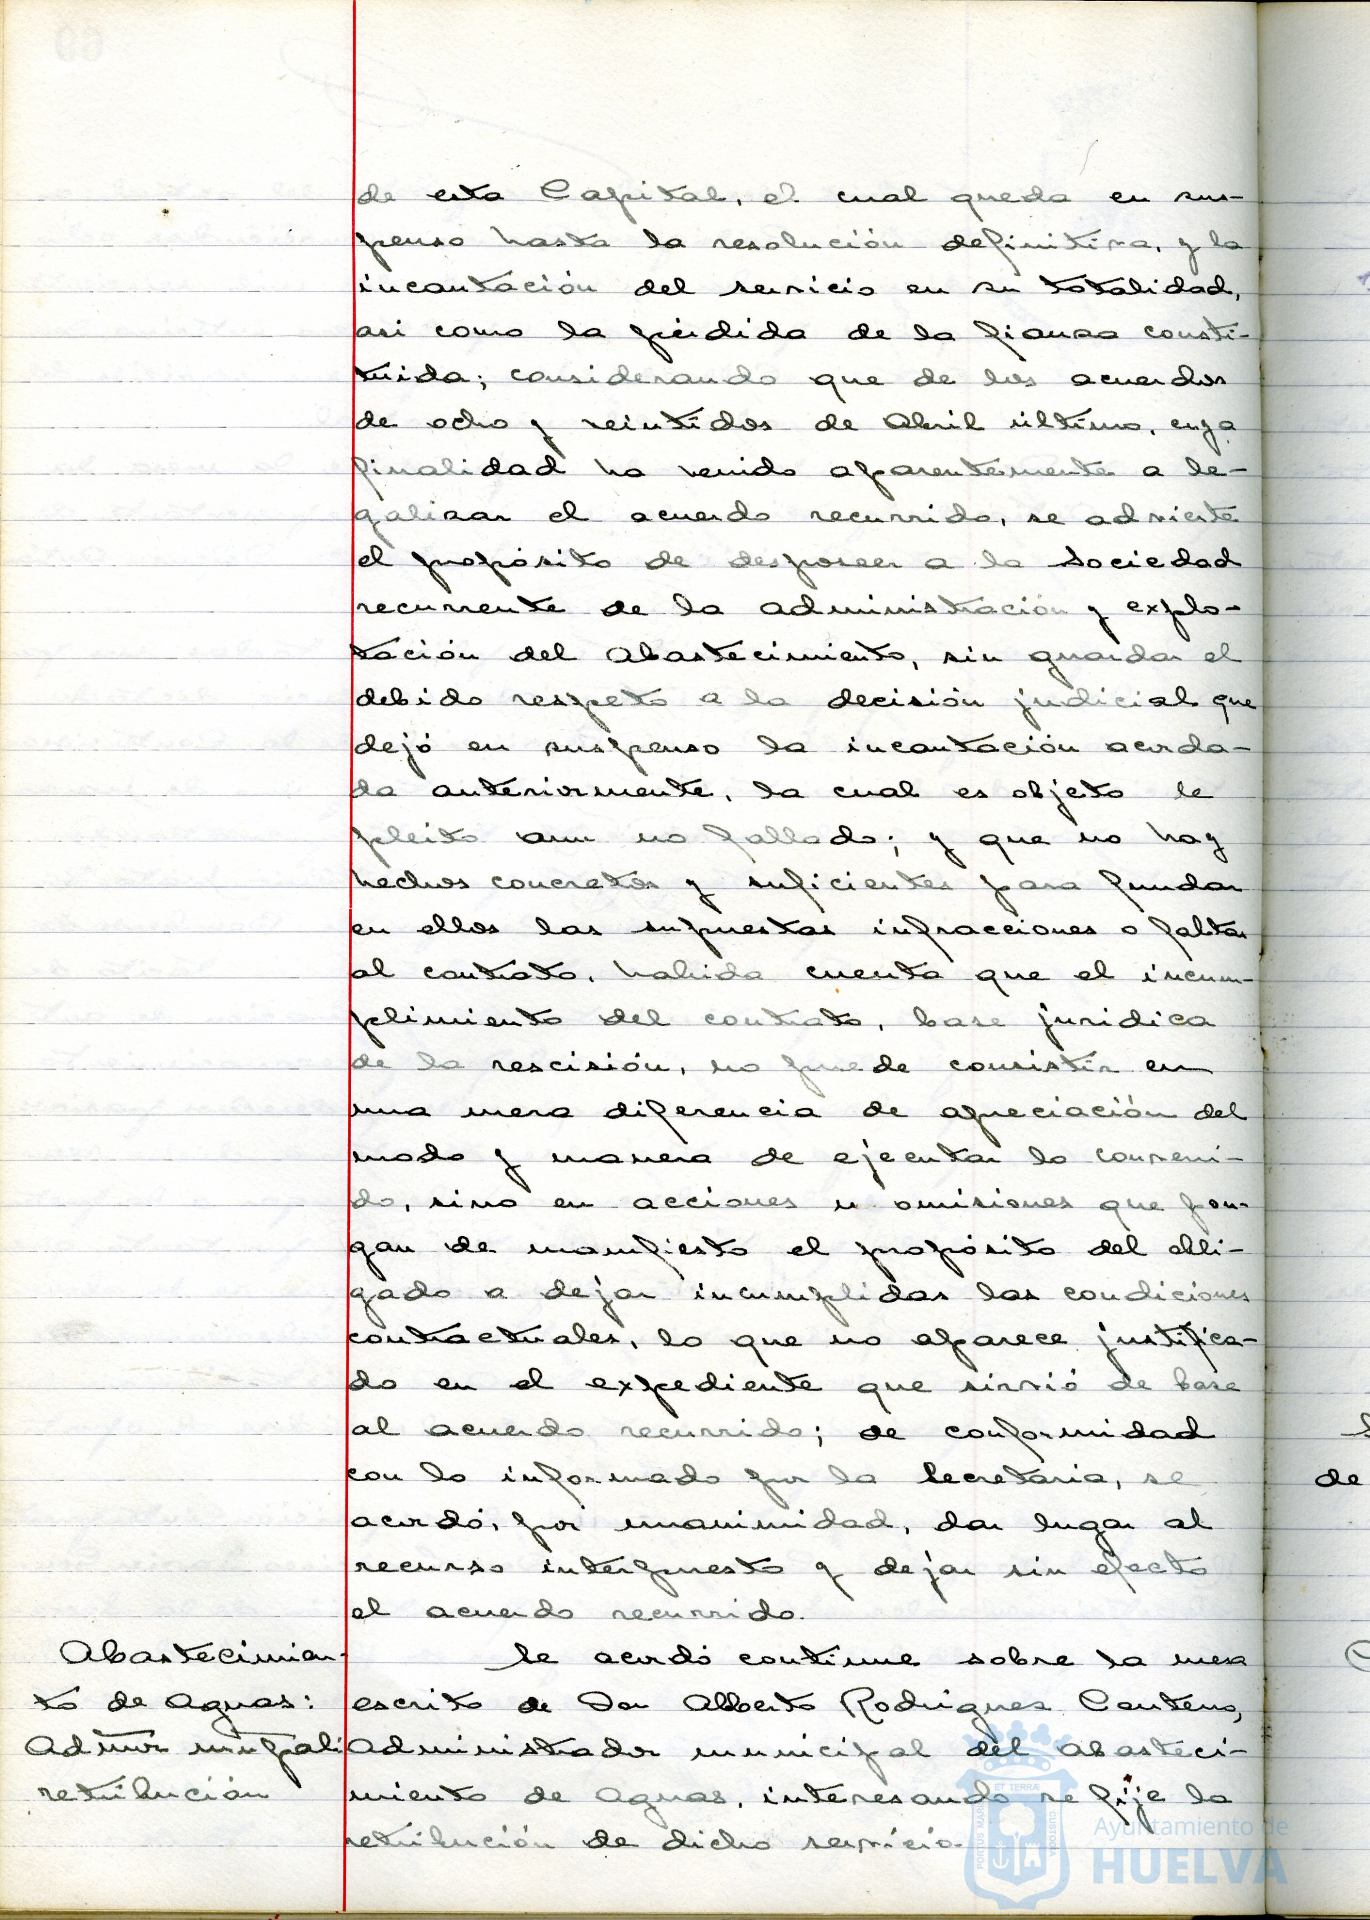 de esta Capital, el cual queda en sus-
penso hasta la resolución definitiva, y la
incautación del servicio en su totalidad,
asi como la pérdida de la fianza consti-
tuida; considerando que de los acuerdos
de ocho y veintidos de Abril último, cuya
finalidad ha venido aparentemente a le-
galizar el acuerdo recurrido, se advierte
el propósito de desposeer a la Sociedad
recurrente de la administración y explo-
tación del Abastecimiento, sin guardar el
debido respeto a la decisión judicial que
dejó en suspenso la incautación acorda-
da anteriormente, la cual es objeto de
pleito aun no fallado; y que no hay
hechos concretos y suficientes para fundar
en ellos las supuestas infracciones o faltas
al contrato, habida cuenta que el incum-
plimiento del contrato, base juridica
de la rescisión, no puede consistir en
una mera diferencia de apreciación del
modo y manera de ejecutar lo conveni-
do, sino en acciones u omisiones que pon-
gan de manifiesto el propósito del obli-
gado a dejar incumplidas las condiciones
contractuales, lo que no aparece justifica-
do en el expediente que sirvió de base
al acuerdo recurrido; de conformidad
con lo informado por la Secretaria, se
acordó, por unanimidad, dar lugar al
recurso interpuesto y dejar sin efecto
el acuerdo recurrido.
Abastecimien-
to de Aguas:
Admor munpal:
retribución
Se acordó continue sobre la mesa
escrito de Don Alberto Rodriguez Centeno,
Administrador municipal del abasteci-
miento de Aguas, interesando se fije la
retribución de dicho servicio.
de
ET TERRÆ
PORTUS MARIS
CUSTODIA
Ayuntamiento de
HUELVA